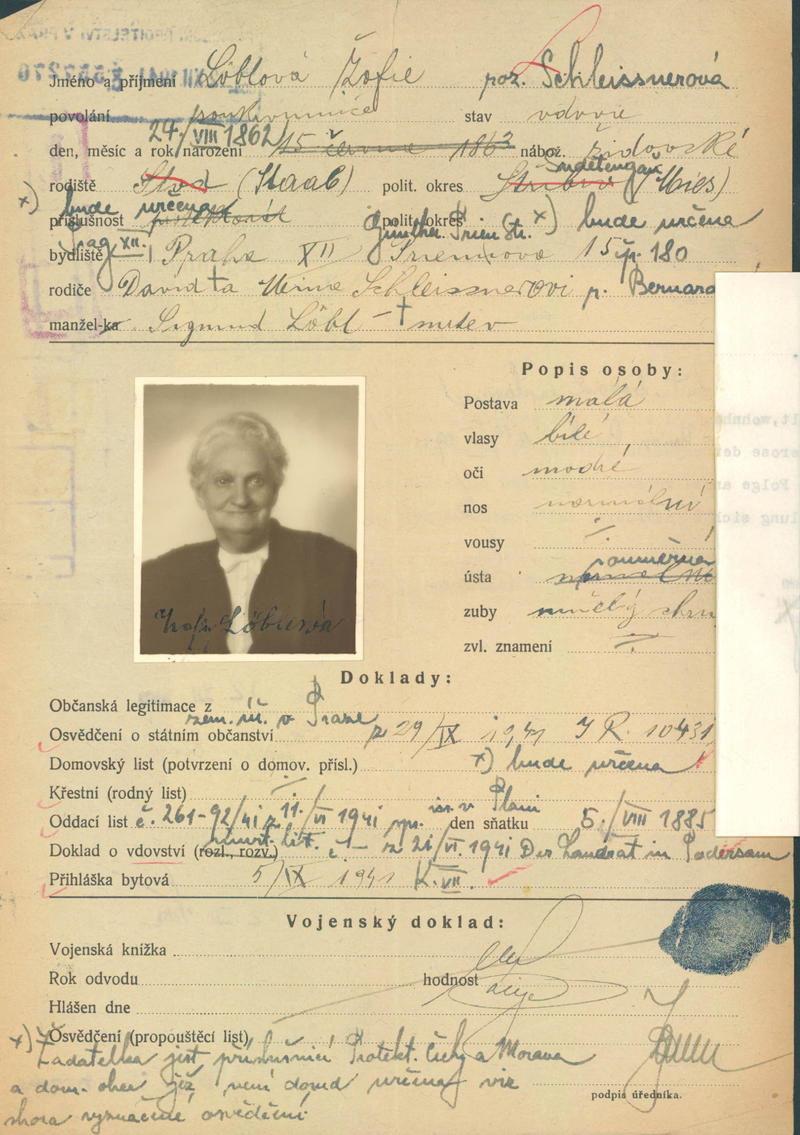 Jméno a příjmení Löblová Žofie roz. Schleissnerová
povolání soukromnice stav vdova
24/VIII 1862
den, měsíc a rok narození 15 června 1863 nábož. židovské
Sudetengau
rodiště Stod (Staab) polit. okres Stříbro (Mies)
x) bude určena
příslušnost polit. okres x) bude určena
Prag XII. Günther Prien Str.
bydliště Praha XII 15 čp. 180
rodiče David † a Schleissnerovi r.
manžel-ka Sigmund Löbl - † mrtev
Popis osoby:
Postava malá
vlasy bílé
oči modré
nos normální
vousy ·/·
souměrná
ústa
zuby
zvl. znamení ·/·
Doklady:
Občanská legitimace z
zem. úř. v Praze
Osvědčení o státním občanství z 29/IX 1941
Domovský list (potvrzení o domov. přísl.) x) bude určena
Křestní (rodný list) ·/·
Oddací list č. 261-92/41 z 11./VI 1941 den sňatku 5./VIII 1885
Doklad o vdovství (rozl., rozv.) č - z 21/VI. 1941 Der Landrat in Podersam
Přihláška bytová 5/IX 1941 K. VII.
Vojenský doklad:
Vojenská knížka
Rok odvodu hodnost
Hlášen dne
Osvědčení (propouštěcí list)
x) Žadatelka jest příslušnicí Protekt. Čechy a Morava
a dom. obec její není dosud určena viz
shora vyznačené osvědčení
podpis úředníka.